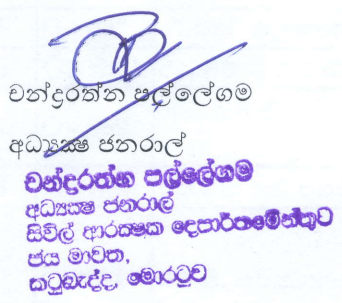 චන්ද්‍රරත්න පල්ලේගම
අධ්‍යක්ෂ ජනරාල්
චන්ද්‍රරත්න පල්ලේගම
අධ්‍යක්ෂ ජනරාල්
සිවිල් ආරක්ෂක දෙපාර්තමේන්තුව
ජය මාවත,
කටුබැද්ද, මොරටුව